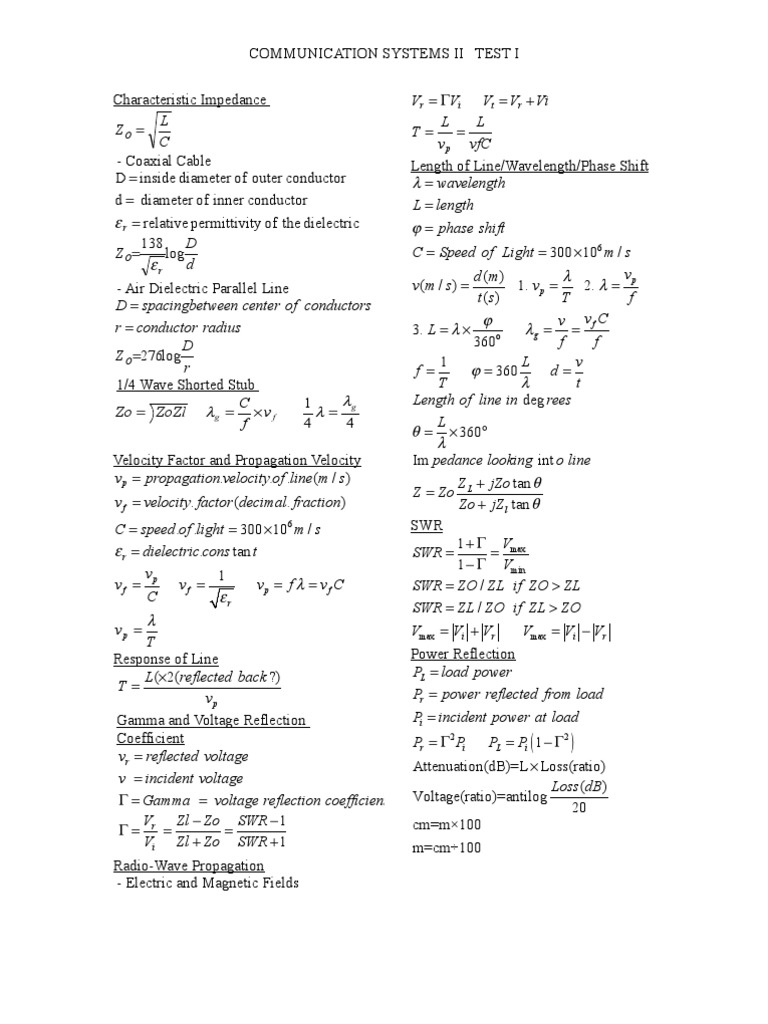 COMMUNICATION SYSTEMS II TEST I
Characteristic Impedance
Z_O = √(L/C)
- Coaxial Cable
D = inside diameter of outer conductor
d = diameter of inner conductor
ε_r = relative permittivity of the dielectric
Z_O = 138/√ε_r log D/d
- Air Dielectric Parallel Line
D = spacingbetween center of conductors
r = conductor radius
Z_O=276log D/r
1/4 Wave Shorted Stub
Zo = √ZoZl λ_g = C/f × v_f 1/4 λ = λ_g/4
Velocity Factor and Propagation Velocity
v_p = propagation.velocity.of.line(m / s)
v_f = velocity.factor(decimal.fraction)
C = speed.of.light = 300×10⁶ m / s
ε_r = dielectric.constant
v_f = v_p/C v_f = 1/√ε_r v_p = fλ = v_f C
v_p = λ/T
Response of Line
T = L(×2(reflected back?)/v_p
Gamma and Voltage Reflection
Coefficient
v_r = reflected voltage
v = incident voltage
Γ = Gamma = voltage reflection coefficien
Γ = V_r/V_i = (Zl − Zo)/(Zl + Zo) = (SWR − 1)/(SWR + 1)
Radio-Wave Propagation
- Electric and Magnetic Fields
V_r = ΓV_i V_t = V_r + Vi
T = L/v_p = L/vfC
Length of Line/Wavelength/Phase Shift
λ = wavelength
L = length
φ = phase shift
C = Speed of Light = 300×10⁶ m / s
v(m / s) = d(m)/t(s) 1. v_p = λ/T 2. λ = v_p/f
3. L = λ × φ/360° λ_g = v/f = v_f C/f
f = 1/T φ = 360 L/λ d = v/t
Length of line in degrees
θ = L/λ × 360°
Impedance looking into line
Z = Zo (Z_L + jZo tan θ)/(Zo + jZ_l tan θ)
SWR
SWR = (1 + Γ)/(1 − Γ) = V_max/V_min
SWR = ZO / ZL if ZO > ZL
SWR = ZL / ZO if ZL > ZO
V_max = |V_i| + |V_r| V_max = |V_i| − |V_r|
Power Reflection
P_L = load power
P_r = power reflected from load
P_i = incident power at load
P_r = Γ²P_i P_L = P_i(1 − Γ²)
Attenuation(dB)=L×Loss(ratio)
Voltage(ratio)=antilog Loss(dB)/20
cm=m×100
m=cm÷100